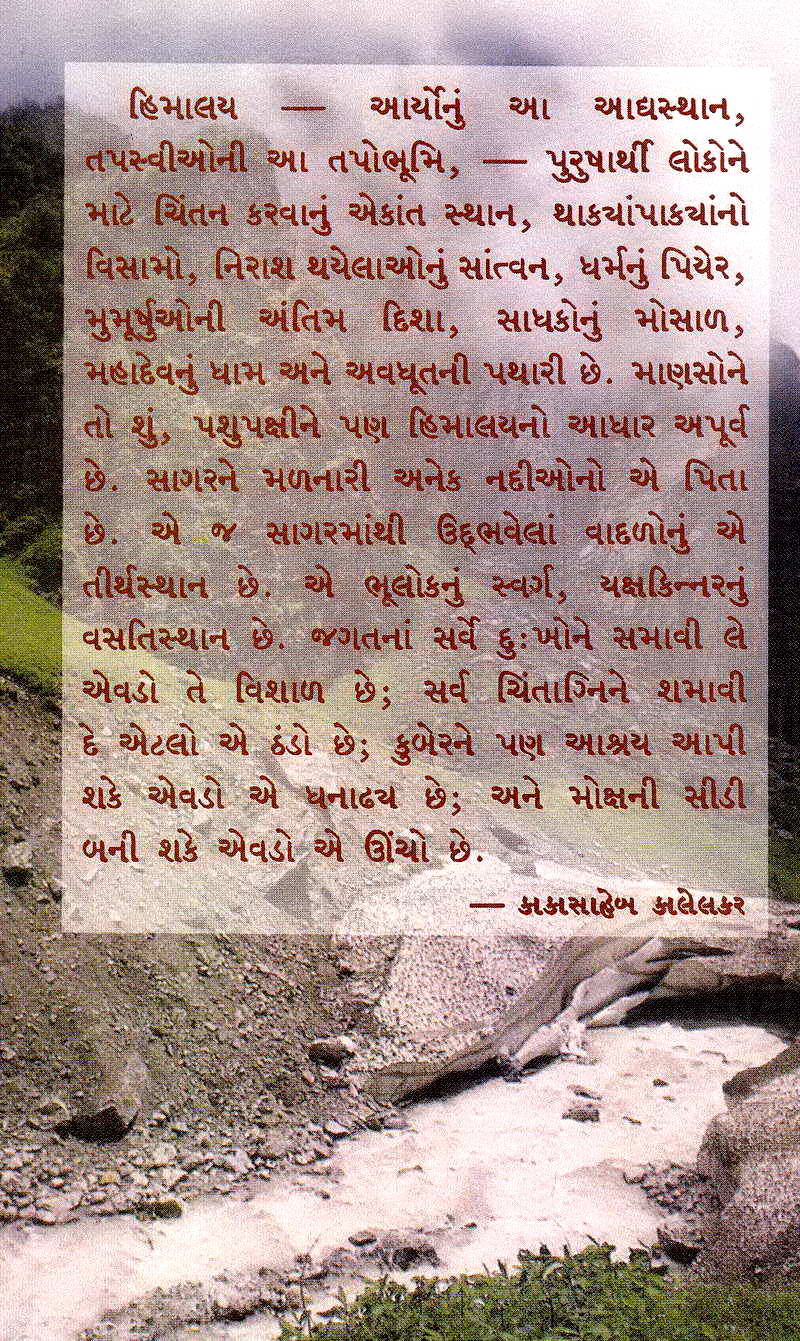 હિમાલય — આર્યોનું આ આદ્યસ્થાન,
તપસ્વીઓની આ તપોભૂમિ, — પુરુષાર્થી લોકોને
માટે ચિંતન કરવાનું એકાંત સ્થાન, થાક્યાંપાક્યાંનો
વિસામો, નિરાશ થયેલાઓનું સાંત્વન, ધર્મનું પિયેર,
મુમૂર્ષુઓની અંતિમ દિશા, સાધકોનું મોસાળ,
મહાદેવનું ધામ અને અવધૂતની પથારી છે. માણસોને
તો શું, પશુપક્ષીને પણ હિમાલયનો આધાર અપૂર્વ
છે. સાગરને મળનારી અનેક નદીઓનો એ પિતા
છે. એ જ સાગરમાંથી ઉદ્ભવેલાં વાદળોનું એ
તીર્થસ્થાન છે. એ ભૂલોકનું સ્વર્ગ, યક્ષકિન્નરનું
વસતિસ્થાન છે. જગતનાં સર્વે દુઃખોને સમાવી લે
એવડો તે વિશાળ છે; સર્વ ચિંતાગ્નિને શમાવી
દે એટલો એ ઠંડો છે; કુબેરને પણ આશ્રય આપી
શકે એવડો એ ધનાઢ્ય છે; અને મોક્ષની સીડી
બની શકે એવડો એ ઊંચો છે.
— કાકાસાહેબ કાલેલકર